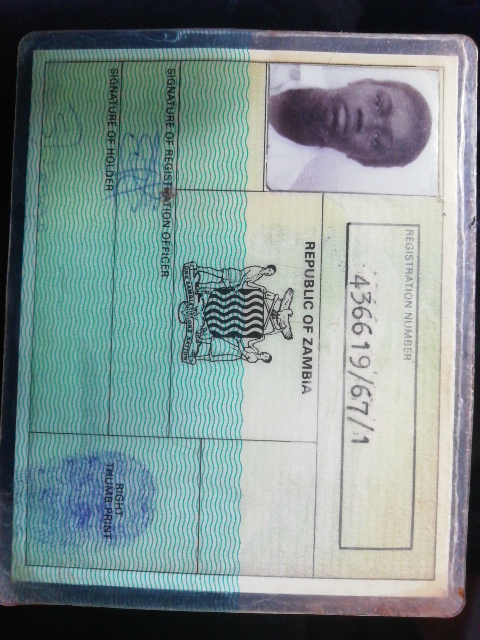 REGISTRATION NUMBER
436619/67/1
REPUBLIC OF ZAMBIA
SIGNATURE OF REGISTRATION OFFICER
SIGNATURE OF HOLDER
RIGHT
THUMB PRINT